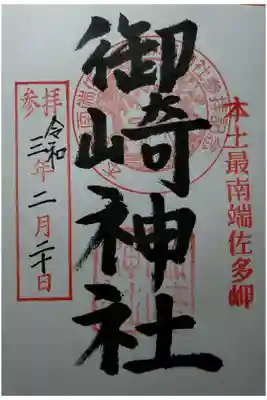 本土最南端佐多岬
御崎神社
参拝
令和三年二月二十日